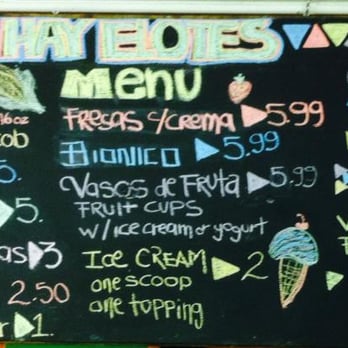 HAY ELOTES
Menu
FRESAS C/CREMA 5.99
BIONICO 5.99
VASOS de FRUTA 5.99
FRUIT CUPS
W/ICE CREAM or yogurt
ICE CREAM 2
one scoop
one topping
16oz
5.
5.
3
2.50
1.